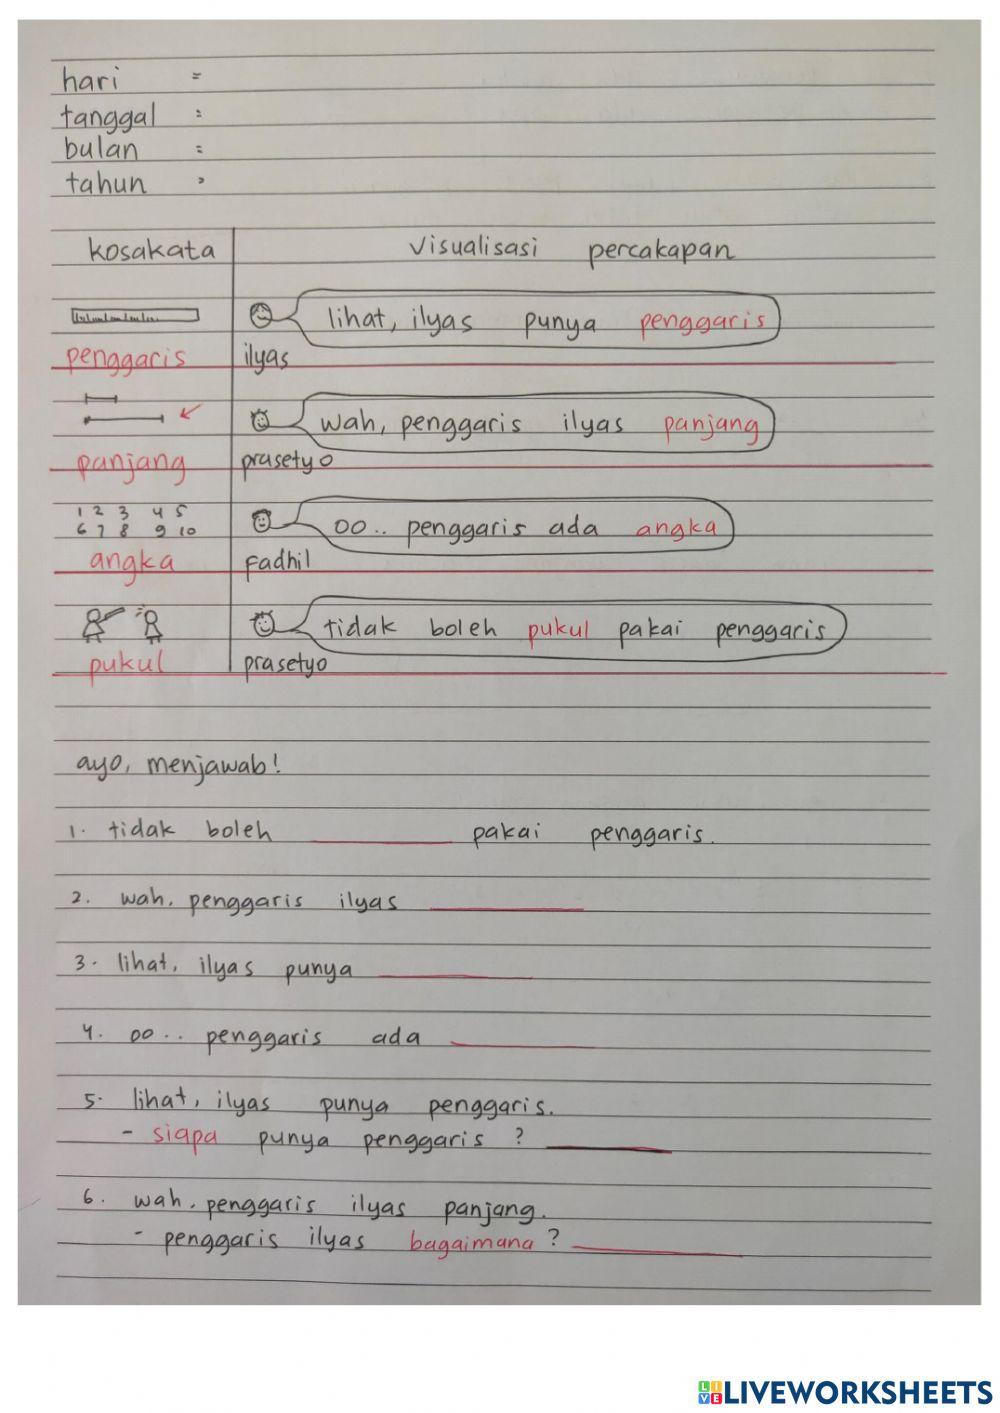 hari =
tanggal :
bulan :
tahun :
kosakata visualisasi percakapan
lihat, ilyas punya penggaris
penggaris ilyas
wah, penggaris ilyas panjang
panjang prasetyo
1 2 3 4 5
6 7 8 9 10
oo.. penggaris ada angka
angka Fadhil
tidak boleh pukul pakai penggaris
pukul prasetyo
ayo, menjawab!
1. tidak boleh ________ pakai penggaris.
2. wah, penggaris ilyas ________
3. lihat, ilyas punya ________
4. oo.. penggaris ada ________
5. lihat, ilyas punya penggaris.
- siapa punya penggaris ? ________
6. wah, penggaris ilyas panjang.
- penggaris ilyas bagaimana ? ________
LIVE LIVEWORKSHEETS